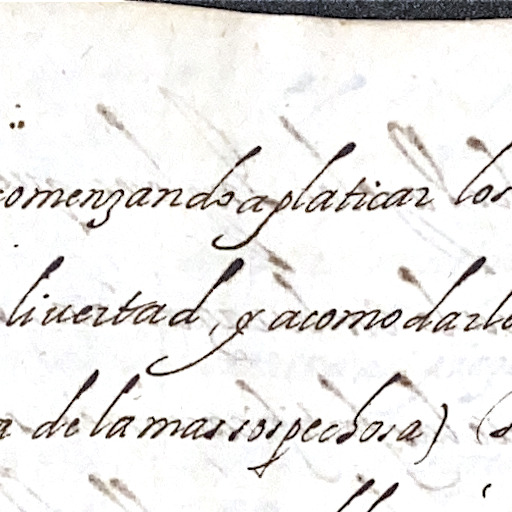 comenzando a platicar los
livertad, y acomodarlo
a de la mas sospechosa) (